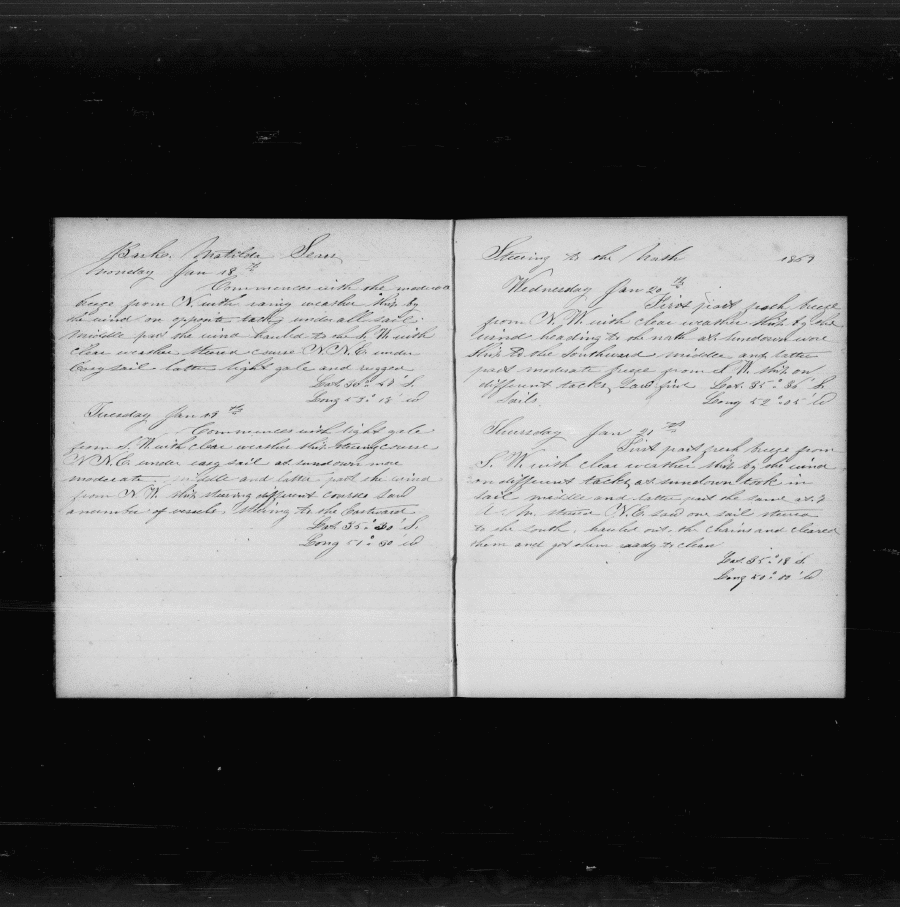 Bark Matilda Sears
Monday Jan 18th
Commences with the moderate
breeze from N. with rainy weather Ship by
the wind on opposite tacks under all sail.
Middle part the wind hauld to the S. W. with
clear weather steered course N.N.E. under
easy sail latter light gale and rugged
Lat 36° S.
Long 53° 18' W
Tuesday Jan 19th
Commences with light gale
from S. W. with clear weather ship steering course
N N. E. under easy sail at sundown more
moderate. middle and latter part the wind
from N W. ship steering different courses Saw
a number of vessels steering to the Eastward
Lat. 35° 30' S.
Long 51° 30' W
Steering to the North 1869
Wednesday Jan 20th
First part fresh breeze
from N. W. with clear weather Ship by the
wind heading to the north at sundown wore
ship to the Southward middle and latter
part moderate breeze from S W. ship on
different tacks, Saw five Lat. 35° 36' S.
Sails. Long 52° 05' W
Thursday Jan 21st
First part fresh breeze from
S. W. with clear weather ship by the wind
on different tacks, at sundown took in
sail middle and latter part the same at 7
A. M. steered N. E. saw one sail steered
to the south, hauled out the chains and cleared
them and got them ready to clean
Lat. 35° 18 S.
Long 50° W